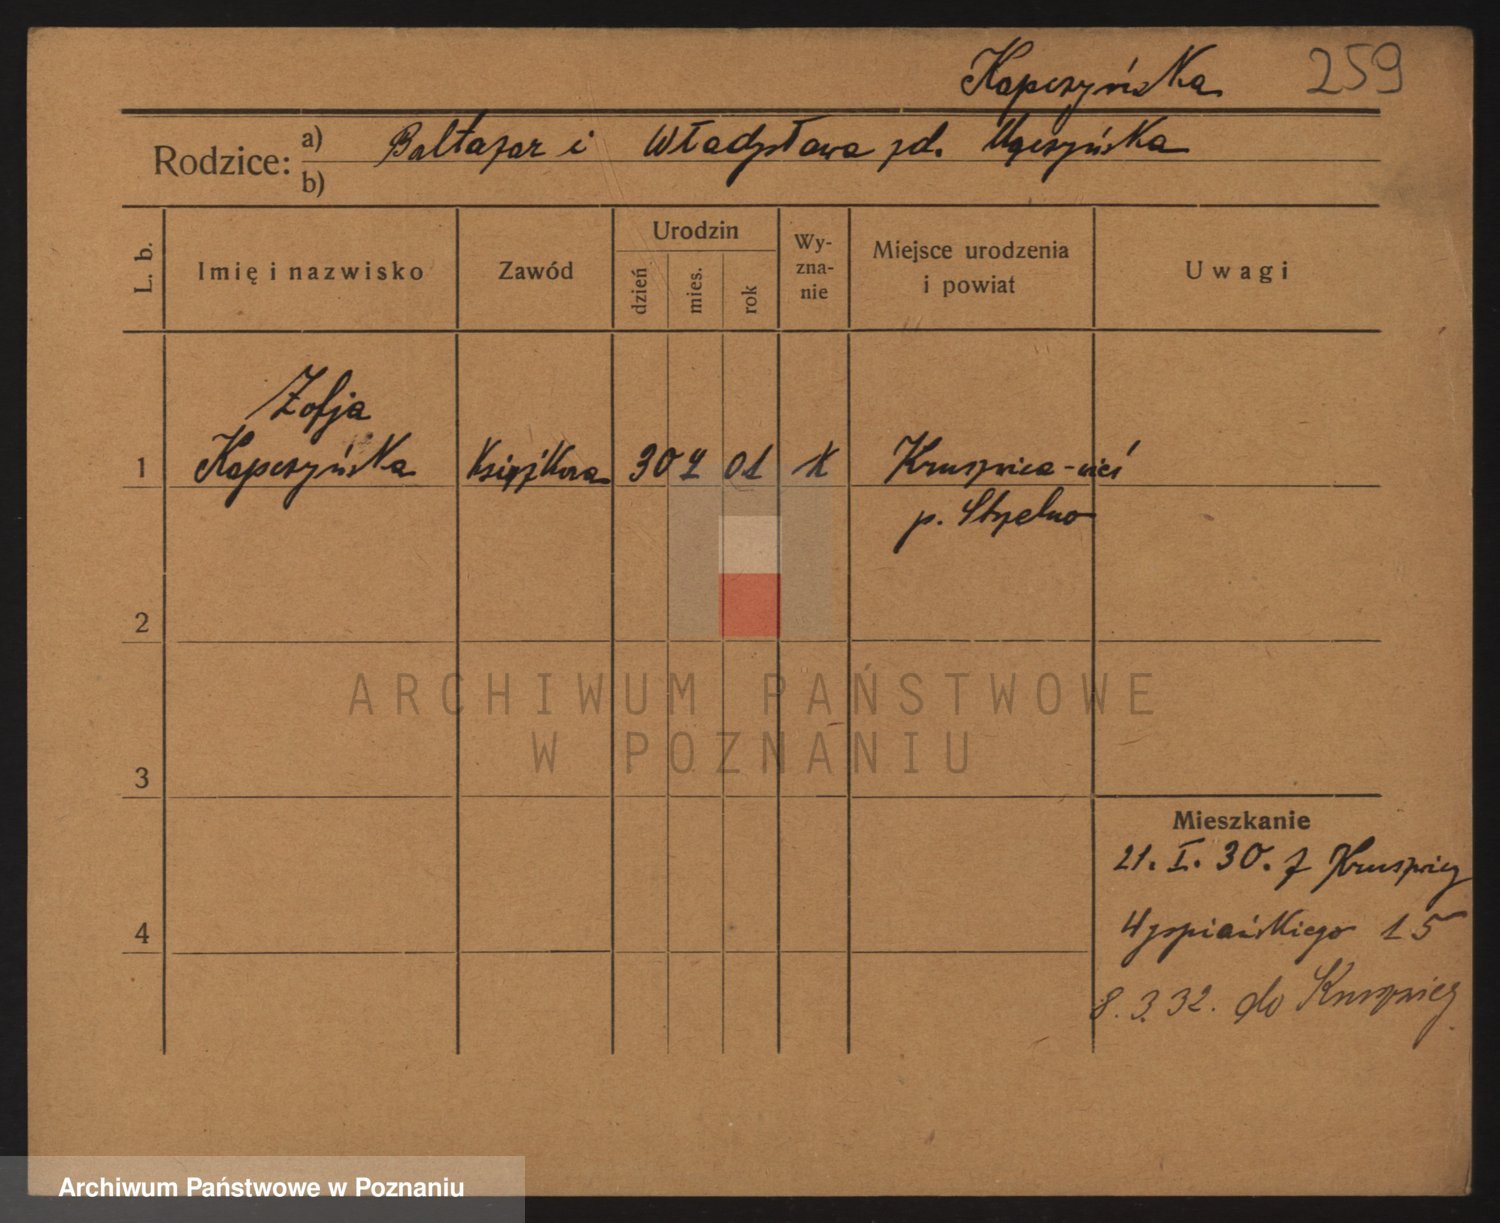 Kapczyńska 259
Rodzice:
a) Baltazar i Władysława zd. Mączyńska
b)
L. b.
Imię i nazwisko
Zawód
Urodzin
dzień
mies.
rok
Wy-
zna-
nie
Miejsce urodzenia
i powiat
Uwagi
Zofja
1 Kapczyńska 30 01 K Kruszwica-wieś
p. Strzelno
2
3
4
Mieszkanie
21. I. 30. z Kruszwicy
Wyspiańskiego 15
8. 3. 32. do Kruszwicy
ARCHIWUM PAŃSTWOWE
W POZNANIU
Archiwum Państwowe w Poznaniu